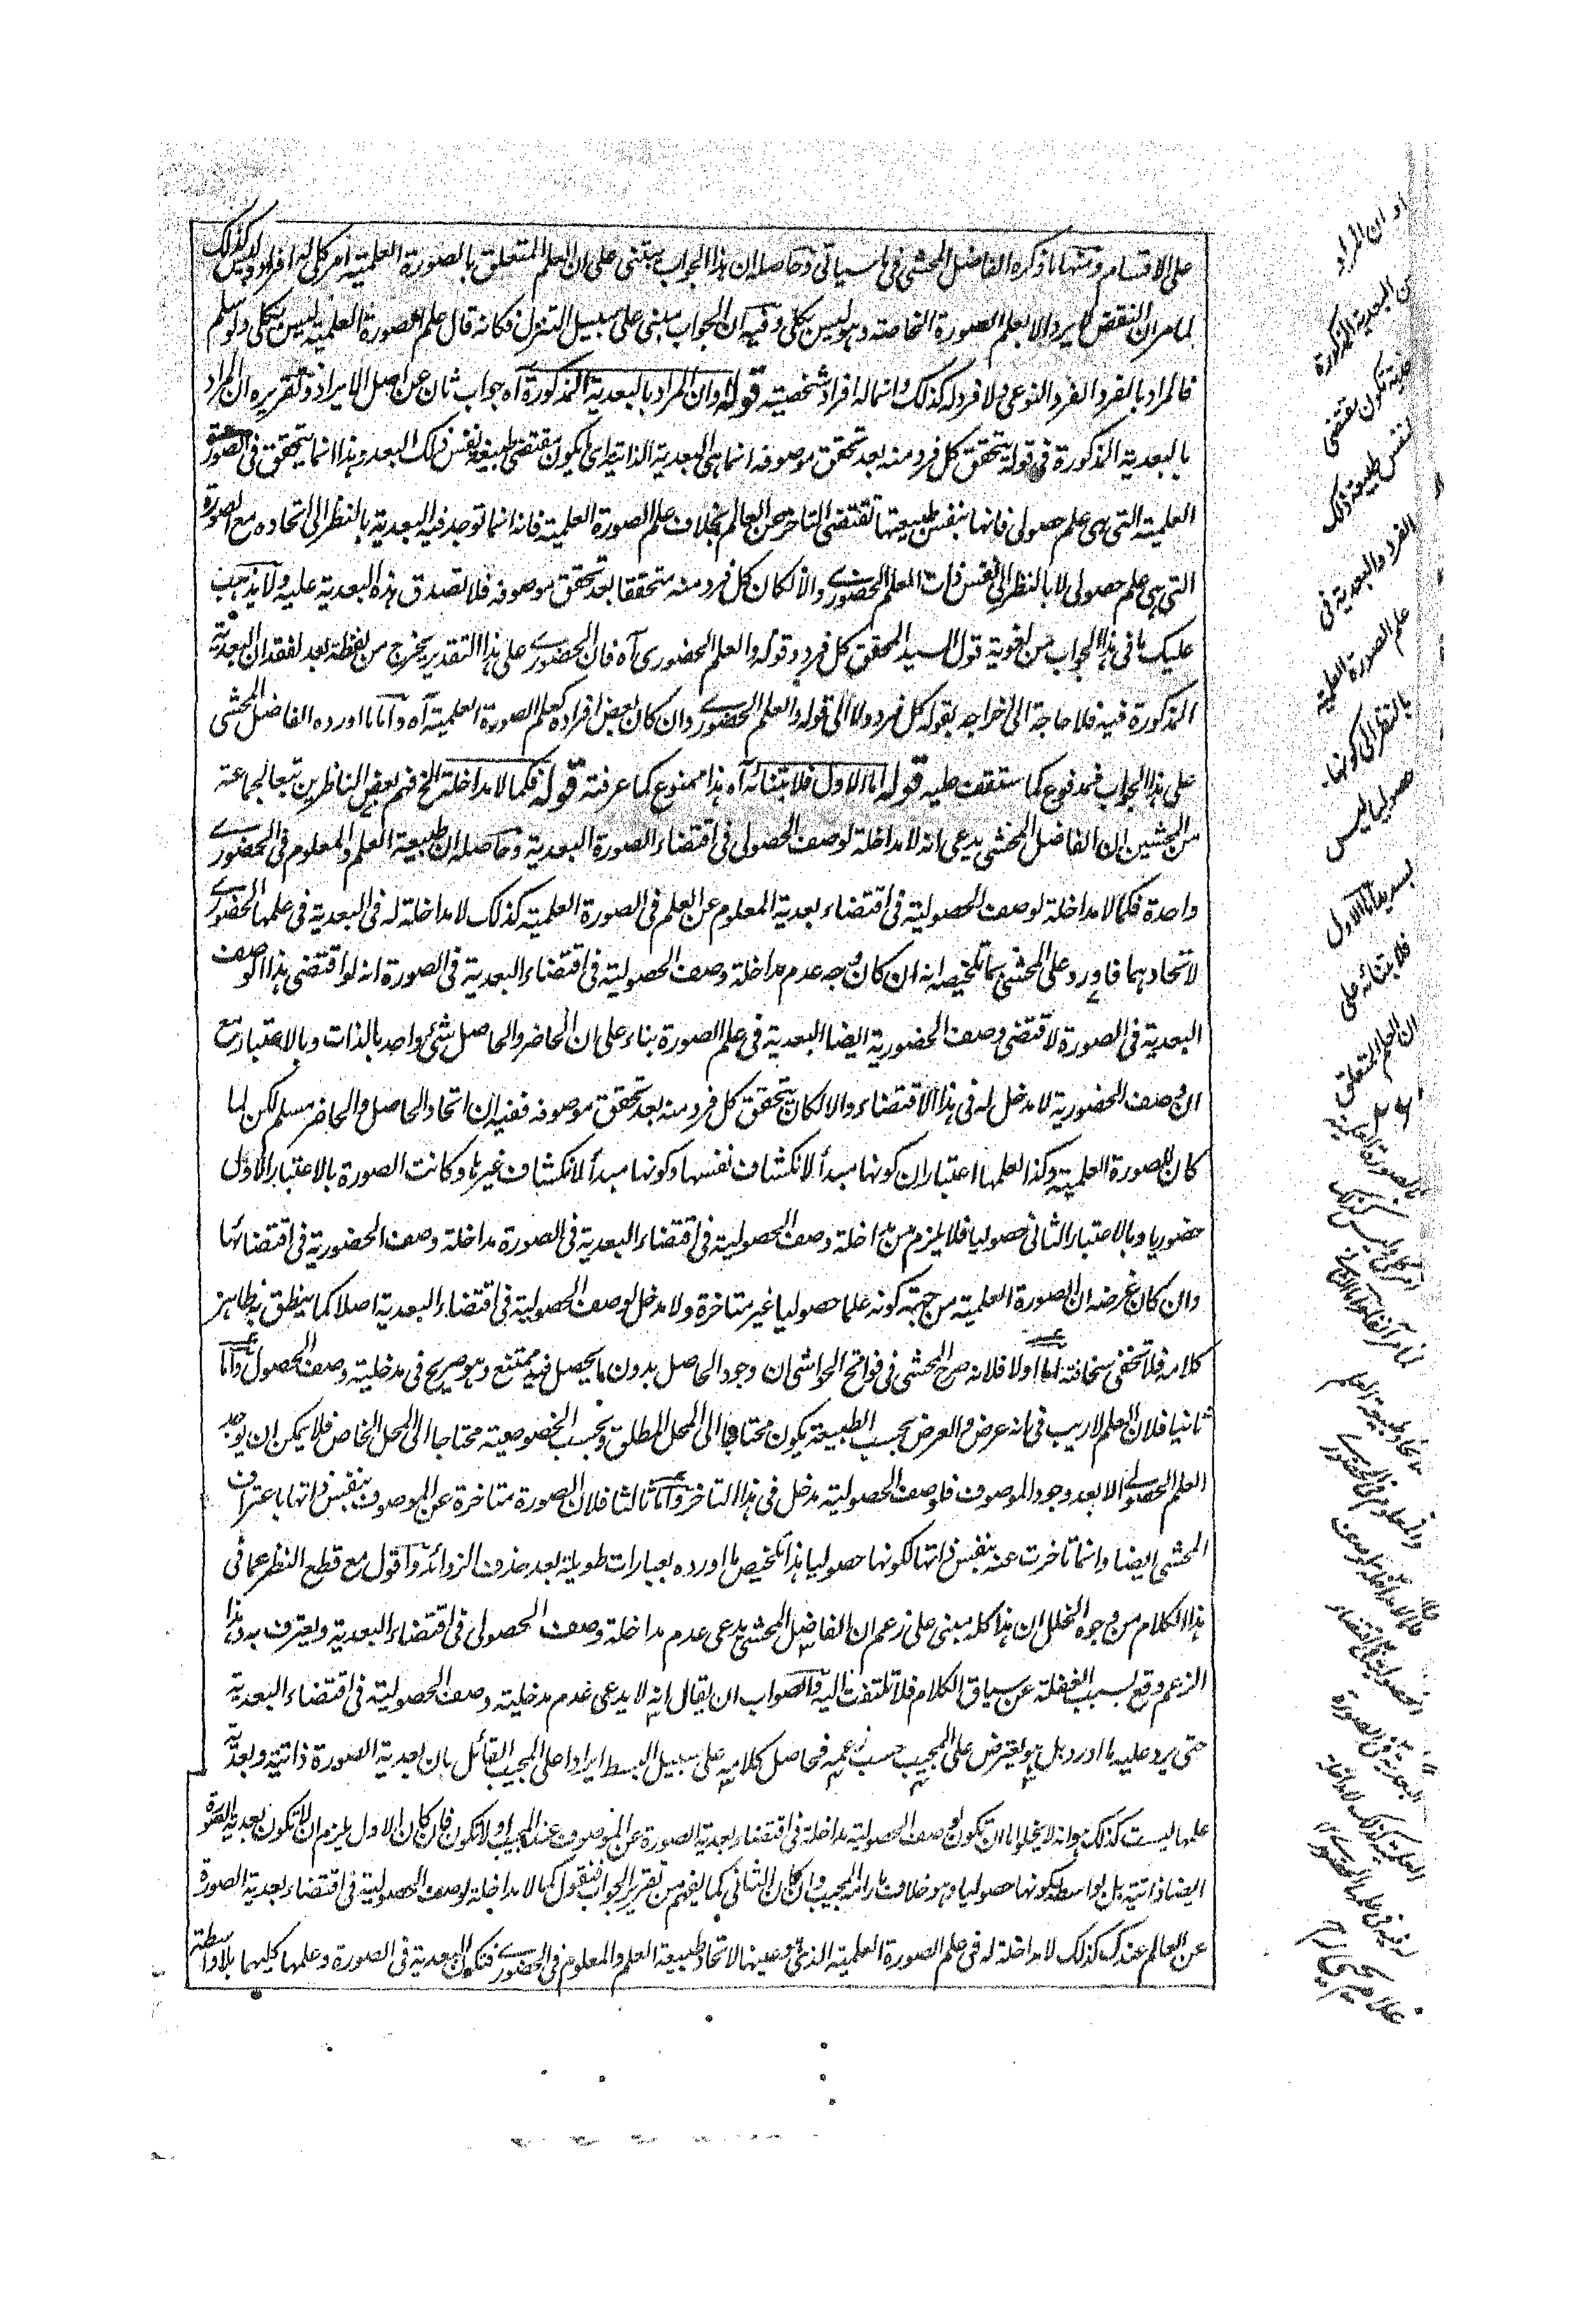 على الاقسام ومنها ما ذكره الفاضل المحشى فى ما سياتى وحاصله ان هذا الجواب مبتنى على ان العلم المتعلق بالصورة العلمية امر كلى له افراد وليس كذلك
لما مر ان النقض لا يرد الا بعلم الصورة الخاصة وهو ليس بكلى وفيه ان الجواب مبنى على سبيل التنزل فكانه قال علم الصورة العلمية ليس بكلى ولو سلم
فالمراد بالفرد الفرد النوعى ولا فرد له كذلك وانما له افراد شخصية قوله او ان المراد بالبعدية المذكورة آه جواب ثان عن اصل الايراد وتقريره ان المراد
بالبعدية المذكورة فى قوله يتحقق كل فرد منه بعد تحقق موصوفه انما هى البعدية الذاتية اى ما يكون مقتضى طبيعة نفس ذلك البعد وهذا انما يتحقق فى الصورة
العلمية التى هى علم حصولى فانها بنفس طبيعتها تقتضى التاخر عن العالم بخلاف علم الصورة العلمية فانه انما توجد فيه البعدية بالنظر الى اتحاده مع الصورة
التى هى علم حصولى لا بالنظر الى نفس ذات العلم الحضورى والا لكان كل فرد منه متحققا بعد تحقق موصوفه فلا تصدق هذه البعدية عليه ولا يذهب
عليك ما فى هذا الجواب من لغوية قول السيد المحقق كل فرد وقوله والعلم الحضورى آه فان الحضورى على هذا التقدير يخرج من لفظة بعد لفقدان البعدية
المذكورة فيه فلا حاجة الى اخراجه بقوله كل فرد ولا الى قوله والعلم الحضورى وان كان بعض افراده كعلم الصورة العلمية آه واما ما اورده الفاضل المحشى
على هذا الجواب فمدفوع كما ستقف عليه قوله اما الاول فلابتنائه آه هذا ممنوع كما عرفته قوله فكما لا مداخلة الخ فهم بعض الناظرين تبعا لجماعة
من المحشين ان الفاضل المحشى يدعى انه لا مداخلة لوصف الحصولى فى اقتضاء الصورة البعدية وحاصله ان طبيعة العلم والمعلوم فى الحضورى
واحدة فكما لا مداخلة لوصف الحصولية فى اقتضاء بعدية المعلوم عن العلم فى الصورة العلمية كذلك لا مداخلة له فى البعدية فى علمها الحضورى
لاتحادهما فاورد على المحشى بما تلخيصه انه ان كان وجه عدم مداخلة وصف الحصولية فى اقتضاء البعدية فى الصورة انه لو اقتضى هذا الوصف
البعدية فى الصورة لاقتضى وصف الحضورية ايضا البعدية فى علم الصورة بناء على ان الحاضر والحاصل شئ واحد بالذات وبالاعتبار مع
ان وصف الحضورية لا مدخل له فى هذا الاقتضاء والا لكان يتحقق كل فرد منه بعد تحقق موصوفه ففيه ان اتحاد الحاصل والحاضر مسلم لكن لما
كان للصورة العلمية وكذا لعلمها اعتباران كونها مبدأ لانكشاف نفسها وكونها مبدأ لانكشاف غيرها وكانت الصورة بالاعتبار الاول
حضوريا وبالاعتبار الثانى حصوليا فلا يلزم من مداخلة وصف الحصولية فى اقتضاء البعدية فى الصورة مداخلة وصف الحضورية فى اقتضائها
وان كان غرضه ان الصورة العلمية من جهة كونه علما حصوليا غير متاخرة ولا مدخل لوصف الحصولية فى اقتضاء البعدية اصلا كما ينطق به ظاهر
كلامه فلا تخفى سخافته اما اولا فلانه صرح المحشى فى فواتح الحواشى ان وجود الحاصل بدون ما يحصل فيه ممتنع وهو صريح فى مدخلية وصف الحصول واما
ثانيا فلان العلم لا ريب فى انه عرض والعرض بحسب الطبيعة يكون محتاجا الى المحل المطلق وبحسب الخصوصية محتاجا الى المحل الخاص فلا يمكن ان يوجد
العلم الحصولى الا بعد وجود الموصوف فلوصف الحصولية مدخل فى هذا التاخر واما ثالثا فلان الصورة متاخرة عن الموصوف بنفس ذاتها باعتراف
المحشى ايضا وانما تاخرت عنه بنفس ذاتها لكونها حصوليا هذا تلخيص ما اورده بعبارات طويلة بعد حذف الزوائد واقول مع قطع النظر عما فى
هذا الكلام من وجوه الخلل ان هذا كله مبنى على زعم ان الفاضل المحشى يدعى عدم مداخلة وصف الحصولى فى اقتضاء البعدية ويعترف به وهذا
الزعم وقع بسبب الغفلة عن سياق الكلام فلا تلتفت اليه والصواب ان يقال انه لا يدعى عدم مدخلية وصف الحصولية فى اقتضاء البعدية
حتى يرد عليه ما اورد بل هو يعترض على المجيب حسب زعمه فحاصل كلامه على سبيل البسط ايرادا على المجيب القائل بان بعدية الصورة ذاتية وبعدية
علمها ليست كذلك هو انه لا يخلو اما ان تكون وصف الحصولية مداخلة فى اقتضاء بعدية الصورة عن الموصوف عند المجيب او لا تكون فان كان الاول يلزم ان لا تكون بعدية الصورة
ايضا ذاتية بل بواسطة كونها حصوليا وهو خلاف ما رامه المجيب وان كان الثانى كما يفهم من تقرير الجواب فنقول كما لا مداخلة لوصف الحصولية فى اقتضاء بعدية الصورة
عن العالم عندك كذلك لا مداخلة له فى علم الصورة العلمية الذى هو عينها لاتحاد طبيعة العلم والمعلوم فى الحضورى فتكون البعدية فى الصورة وعلمها كليهما بلا واسطة
او ان المراد
من البعدية المذكورة
نفس طبيعة ذلك
الفرد والبعدية فى
علم الصورة العلمية
بالنظر الى كونها
حصوليا ليس
اما الاول
فلابتنائه على
ان العلم المتعلق